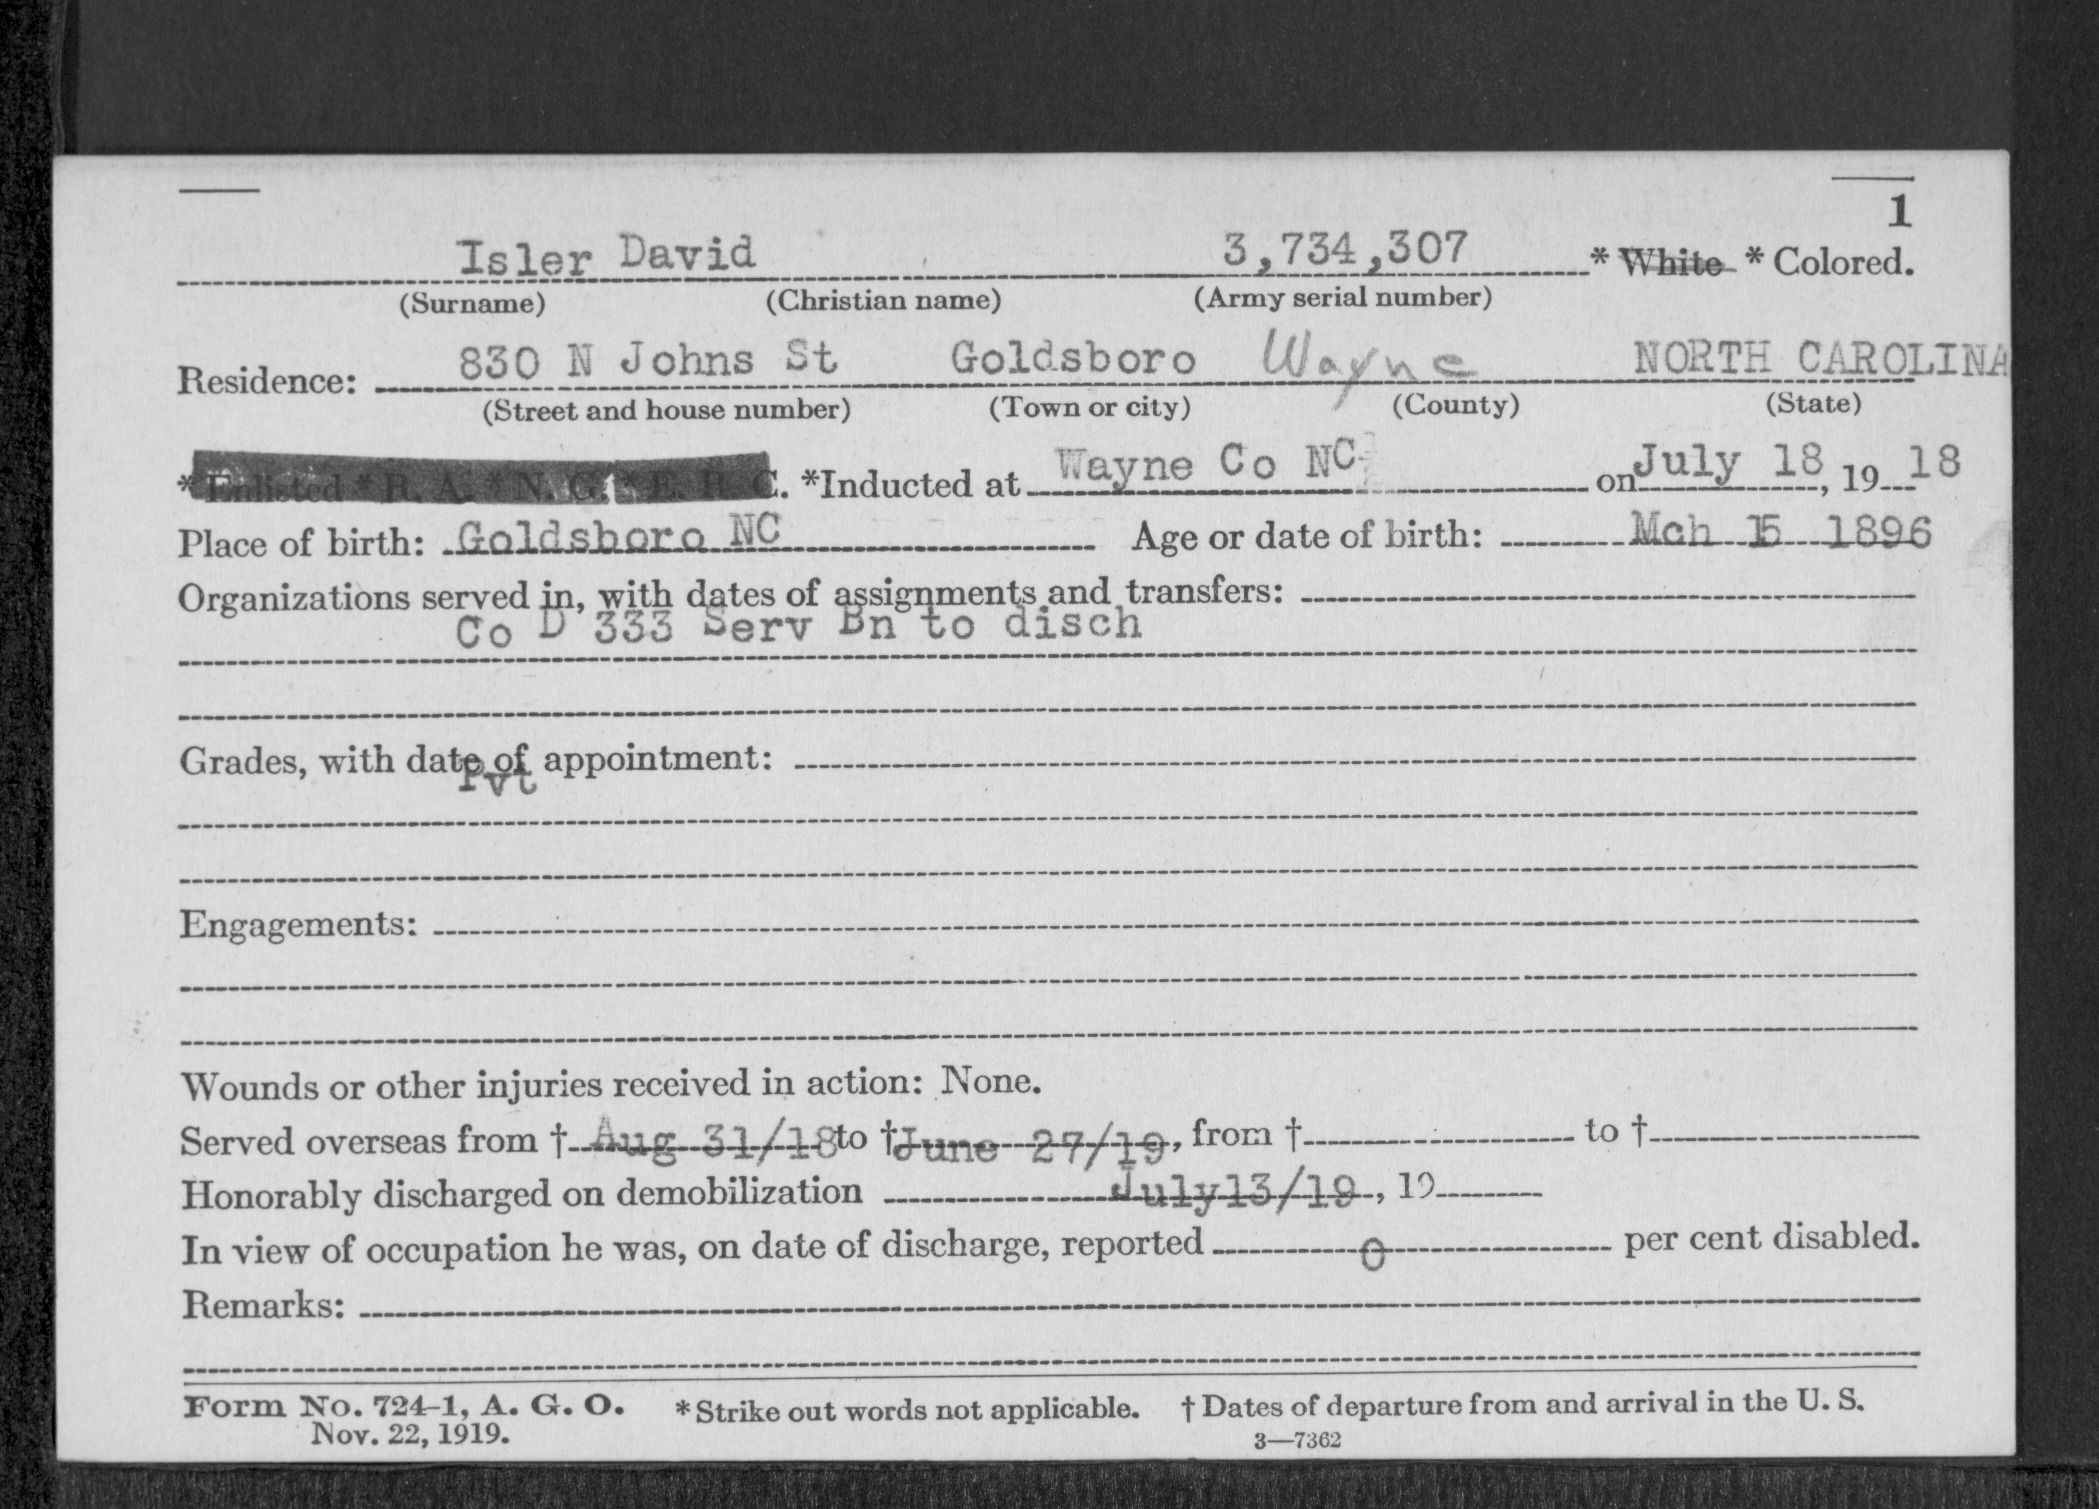 1
Isler David 3,734,307 * White * Colored.
(Surname) (Christian name) (Army serial number)
Residence: 830 N Johns St Goldsboro Wayne NORTH CAROLINA
(Street and house number) (Town or city) (County) (State)
* Enlisted * R. A. * N. G. * E. R. C. *Inducted at Wayne Co NC on July 18, 19 18
Place of birth: Goldsboro NC Age or date of birth: Mch 15 1896
Organizations served in, with dates of assignments and transfers:
Co D 333 Serv Bn to disch
Grades, with date of appointment:
Pvt
Engagements:
Wounds or other injuries received in action: None.
Served overseas from † Aug 31/18 to † June 27/19, from † to †
Honorably discharged on demobilization July13/19, 19
In view of occupation he was, on date of discharge, reported 0 per cent disabled.
Remarks:
Form No. 724-1, A. G. O. *Strike out words not applicable. † Dates of departure from and arrival in the U. S.
Nov. 22, 1919. 3—7362